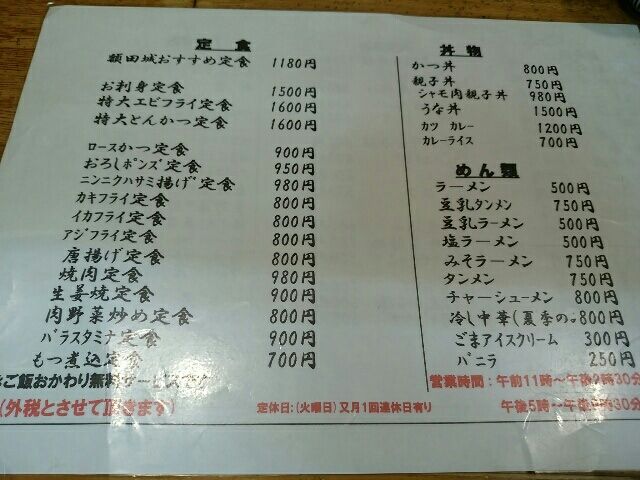 定食
額田城おすすめ定食 1180円
お刺身定食 1500円
特大エビフライ定食 1600円
特大とんかつ定食 1600円
ロースかつ定食 900円
おろしポンズ定食 950円
ニンニクハサミ揚げ定食 980円
カキフライ定食 800円
イカフライ定食 800円
アジフライ定食 800円
唐揚げ定食 800円
焼肉定食 980円
生姜焼定食 900円
肉野菜炒め定食 800円
バラスタミナ定食 900円
もつ煮込定食 700円
ご飯おかわり無料サービスです
(外税とさせて頂きます)
定休日:(火曜日)又月1回連休日有り
丼物
かつ丼 800円
親子丼 750円
シャモ肉親子丼 980円
うな丼 1500円
カツ カレー 1200円
カレーライス 700円
めん類
ラーメン 500円
豆乳タンメン 750円
豆乳ラーメン 500円
塩ラーメン 500円
みそラーメン 750円
タンメン 750円
チャーシューメン 800円
冷し中華(夏季の 800円
ごまアイスクリーム 300円
バニラ 250円
営業時間:午前11時~午後2時30分
午後5時~午後 時30分